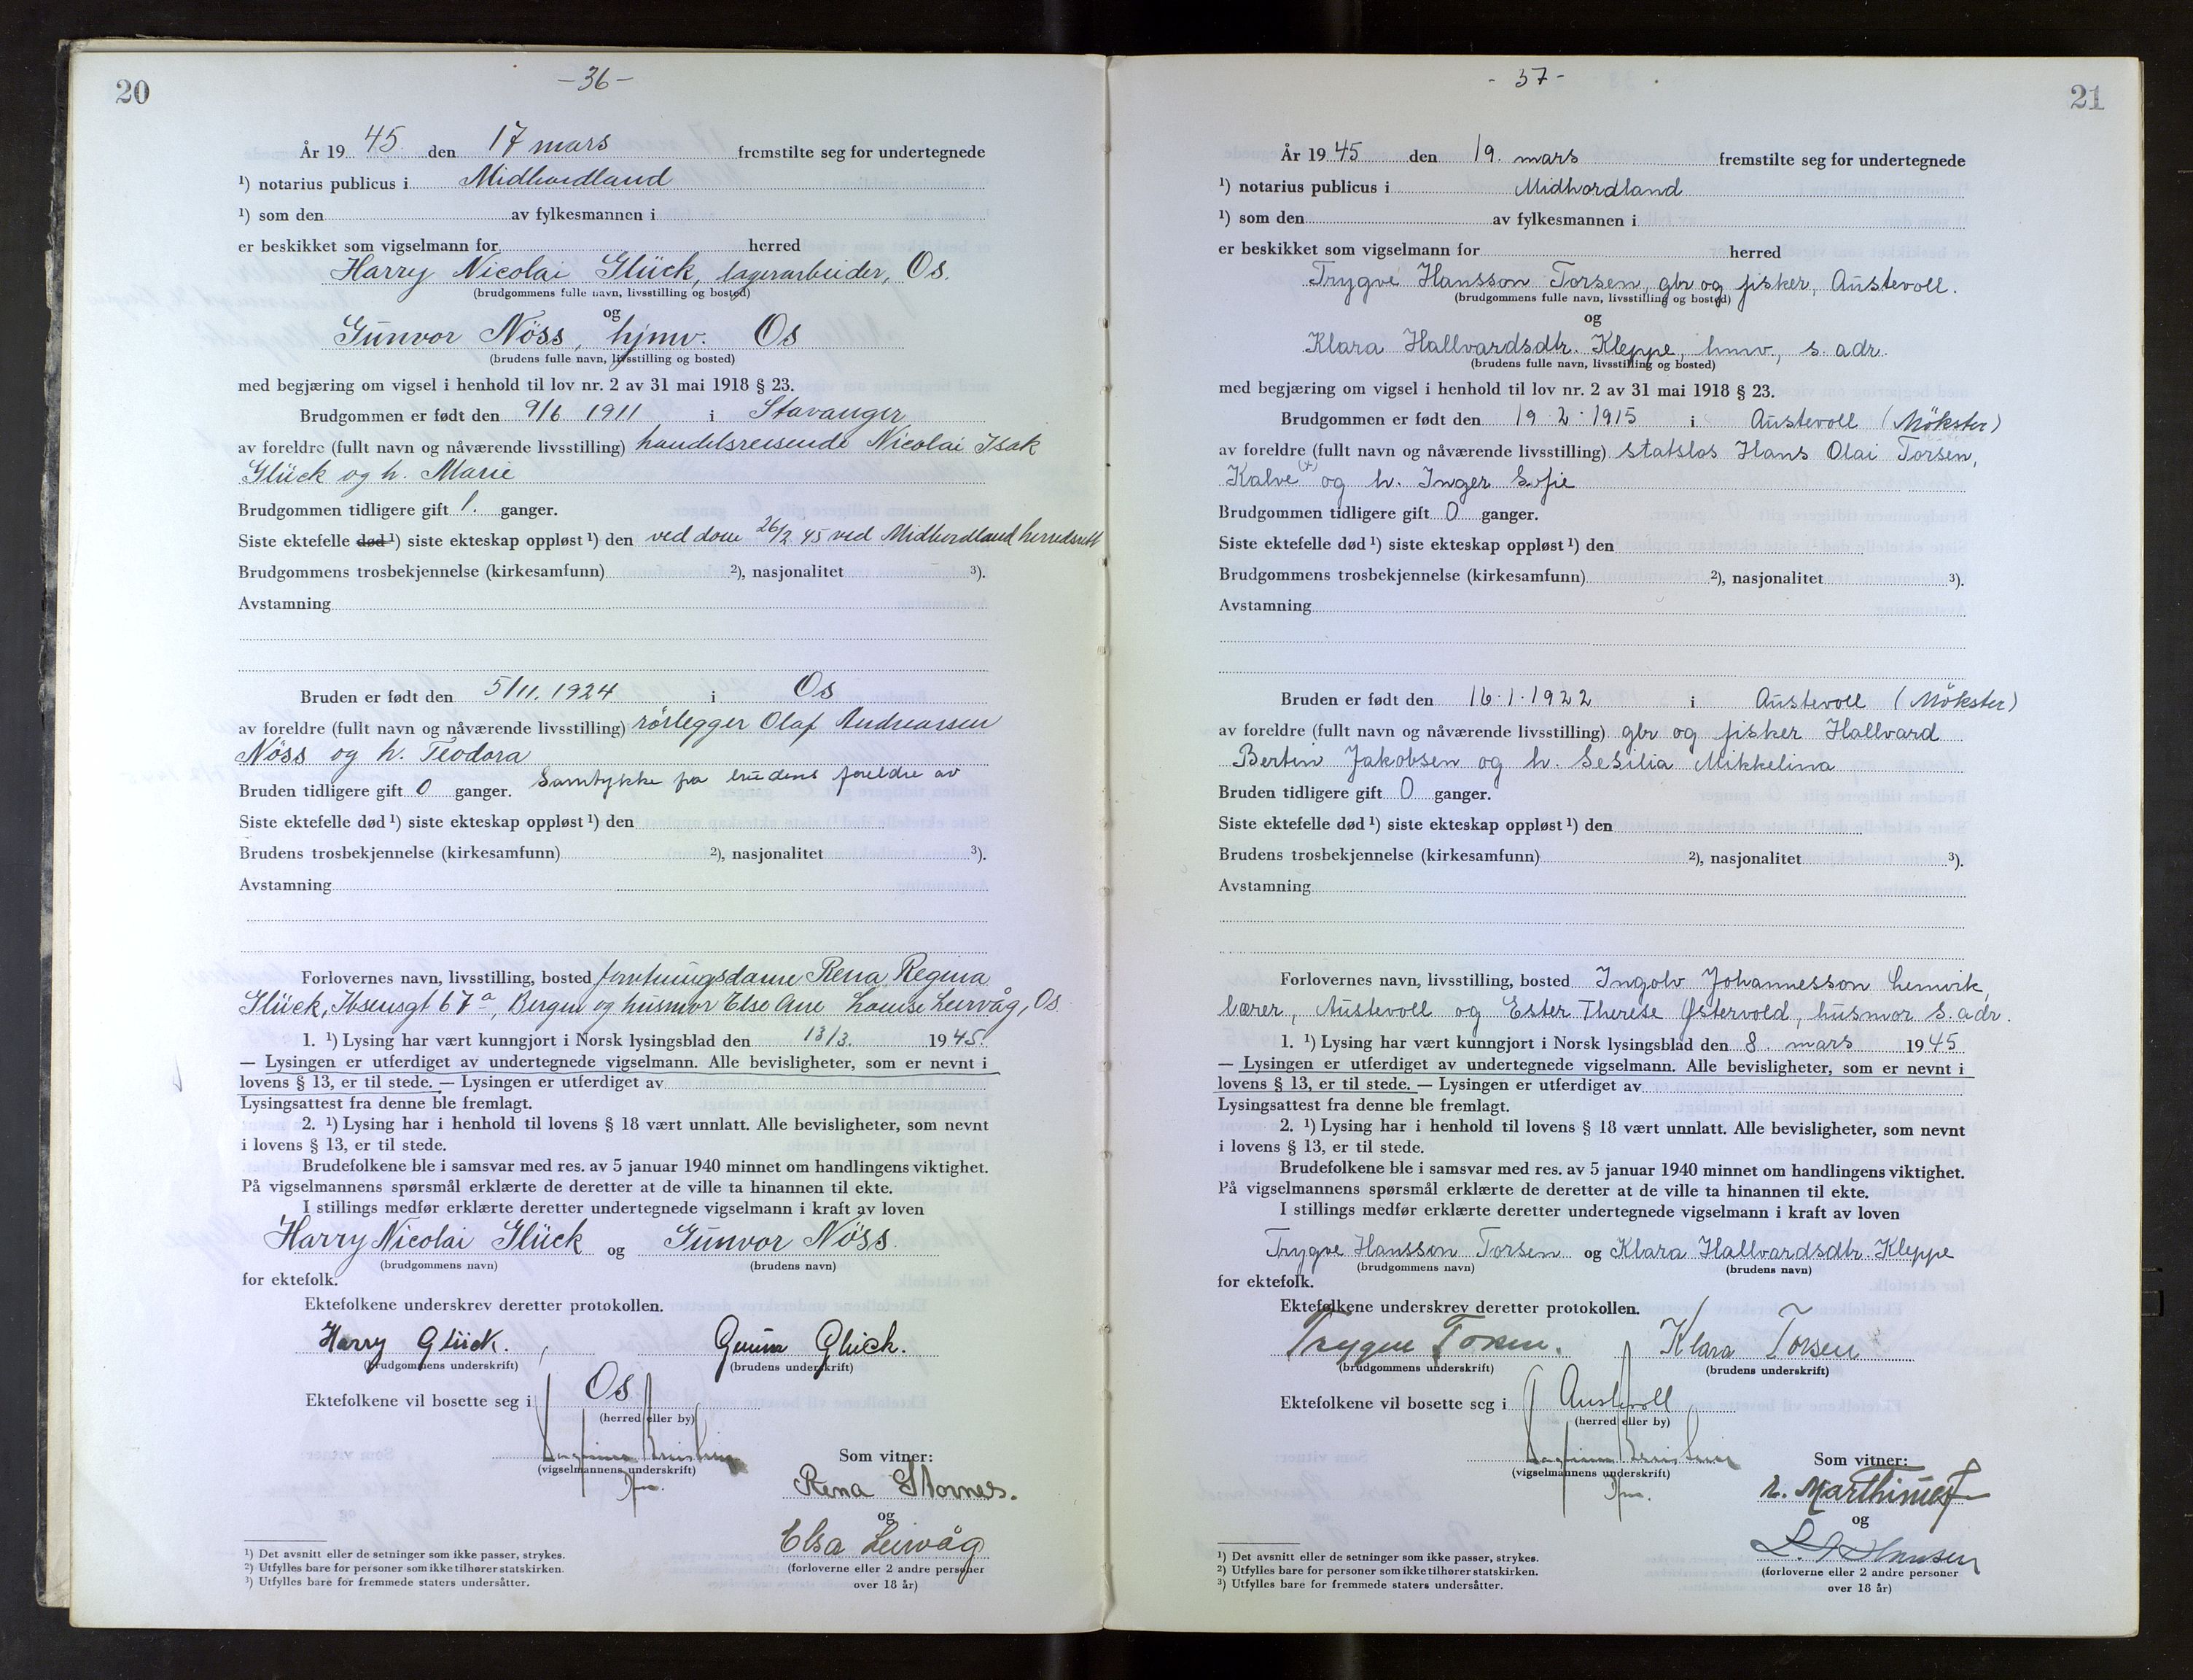 20
-36-
År 1945. den 17 mars fremstilte seg for undertegnede
¹) notarius publicus i Midhordland
¹) som den av fylkesmannen i
er beskikket som vigselmann for herred
Harry Nicolai Glück, lagerarbeider, Os.
(brudgommens fulle navn, livsstilling og bosted)
og
Gunvor Nöss, hjmv. Os
(brudens fulle navn, livsstilling og bosted)
med begjæring om vigsel i henhold til lov nr. 2 av 31 mai 1918 § 23.
Brudgommen er født den 9/6 1911 i Stavanger
av foreldre (fullt navn og nåværende livsstilling) handelsreisende Nicolai Isak
Glück og h. Marie
Brudgommen tidligere gift 1. ganger.
Siste ektefelle død ¹) siste ekteskap oppløst ¹) den ved dom 26/2 45 ved Midhordland herredsrett
Brudgommens trosbekjennelse (kirkesamfunn) ²), nasjonalitet ³).
Avstamning
Bruden er født den 5/11. 1924 i Os
av foreldre (fullt navn og nåværende livsstilling) rörlegger Olaf Andreassen
Nöss og h. Teodora
Bruden tidligere gift 0 ganger. Samtykke fra brudens foreldre av
Siste ektefelle død ¹) siste ekteskap oppløst ¹) den
Brudens trosbekjennelse (kirkesamfunn) ²), nasjonalitet ³).
Avstamning
Forlovernes navn, livsstilling, bosted forretningsdame Rena Regina
Glück, Ibsensgt 67ª, Bergen og husmor Else Ane Louise Leirvåg, Os
1. ¹) Lysing har vært kunngjort i Norsk lysingsblad den 13/3 1945.
— Lysingen er utferdiget av undertegnede vigselmann. Alle bevisligheter, som er nevnt i
lovens § 13, er til stede. — Lysingen er utferdiget av
Lysingsattest fra denne ble fremlagt.
2. ¹) Lysing har i henhold til lovens § 18 vært unnlatt. Alle bevisligheter, som nevnt
i lovens § 13, er til stede.
Brudefolkene ble i samsvar med res. av 5 januar 1940 minnet om handlingens viktighet.
På vigselmannens spørsmål erklærte de deretter at de ville ta hinannen til ekte.
I stillings medfør erklærte deretter undertegnede vigselmann i kraft av loven
Harry Nicolai Glück og Gunvor Nöss
(brudgommens navn) (brudens navn)
for ektefolk.
Ektefolkene underskrev deretter protokollen.
Harry Glück. Gunvor Glück.
(brudgommens underskrift) (brudens underskrift)
Ektefolkene vil bosette seg i Os
(herred eller by)
(vigselmannens underskrift)
Som vitner:
Rena Stornes.
og
Elsa Leirvåg
(forloverne eller 2 andre personer
over 18 år)
¹) Det avsnitt eller de setninger som ikke passer, strykes.
²) Utfylles bare for personer som ikke tilhører statskirken.
³) Utfylles bare for fremmede staters undersåtter.
21
-37-
År 1945 den 19. mars fremstilte seg for undertegnede
¹) notarius publicus i Midhordland
¹) som den av fylkesmannen i
er beskikket som vigselmann for herred
Trygve Hansson Torsen, gbr og fisker, Austevoll.
(brudgommens fulle navn, livsstilling og bosted)
og
Klara Hallvardsdtr. Kleppe, hmv., s. adr.
(brudens fulle navn, livsstilling og bosted)
med begjæring om vigsel i henhold til lov nr. 2 av 31 mai 1918 § 23.
Brudgommen er født den 19.2.1915 i Austevoll (Mökster)
av foreldre (fullt navn og nåværende livsstilling) statslos Hans Olai Torsen,
Kalve (+) og h. Inger Sofie
Brudgommen tidligere gift 0 ganger.
Siste ektefelle død ¹) siste ekteskap oppløst ¹) den
Brudgommens trosbekjennelse (kirkesamfunn) ²), nasjonalitet ³).
Avstamning
Bruden er født den 16.1.1922 i Austevoll (Mökster)
av foreldre (fullt navn og nåværende livsstilling) gbr og fisker Hallvard
Bertin Jakobsen og h. Sesilia Mikkelina
Bruden tidligere gift 0 ganger.
Siste ektefelle død ¹) siste ekteskap oppløst ¹) den
Brudens trosbekjennelse (kirkesamfunn) ²), nasjonalitet ³).
Avstamning
Forlovernes navn, livsstilling, bosted Ingolv Johannesson Lenvik,
lærer, Austevoll og Ester Therese Østervold, husmor s. adr.
1. ¹) Lysing har vært kunngjort i Norsk lysingsblad den 8. mars 1945
— Lysingen er utferdiget av undertegnede vigselmann. Alle bevisligheter, som er nevnt i
lovens § 13, er til stede. — Lysingen er utferdiget av
Lysingsattest fra denne ble fremlagt.
2. ¹) Lysing har i henhold til lovens § 18 vært unnlatt. Alle bevisligheter, som nevnt
i lovens § 13, er til stede.
Brudefolkene ble i samsvar med res. av 5 januar 1940 minnet om handlingens viktighet.
På vigselmannens spørsmål erklærte de deretter at de ville ta hinannen til ekte.
I stillings medfør erklærte deretter undertegnede vigselmann i kraft av loven
Trygve Hansson Torsen og Klara Hallvardsdtr. Kleppe
(brudgommens navn) (brudens navn)
for ektefolk.
Ektefolkene underskrev deretter protokollen.
Trygve Torsen. Klara Torsen
(brudgommens underskrift) (brudens underskrift)
Ektefolkene vil bosette seg i Austevoll
(herred eller by)
(vigselmannens underskrift)
Som vitner:
og
Hansen
(forloverne eller 2 andre personer
over 18 år)
¹) Det avsnitt eller de setninger som ikke passer, strykes.
²) Utfylles bare for personer som ikke tilhører statskirken.
³) Utfylles bare for fremmede staters undersåtter.